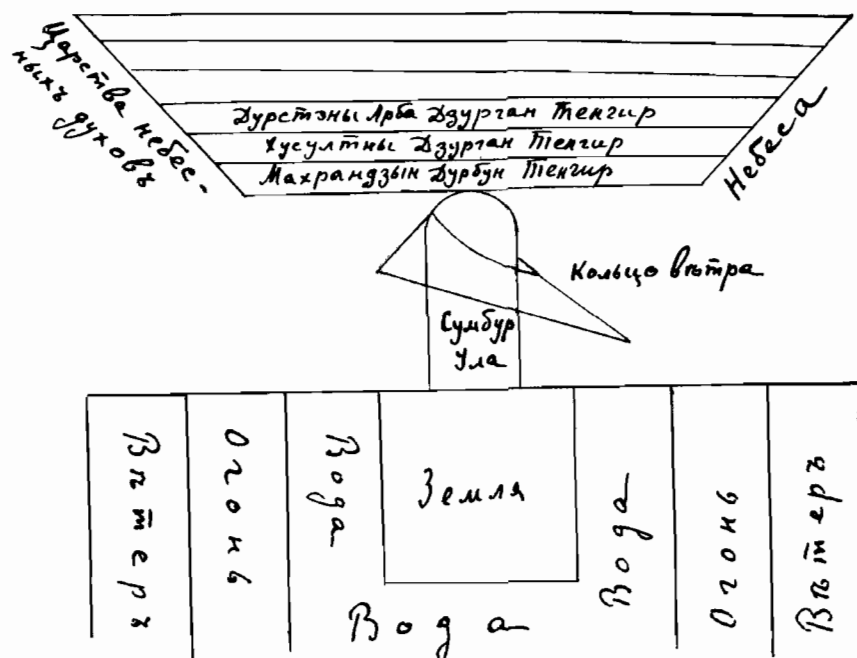 Царства небес-
ныхъ духовъ
Небеса
Дурстэны Арба Дзурган Тенгир
Хусултны Дзурган Тенгир
Махрандзын Дурбун Тенгир
Кольцо вѣтра
Сумбур
Ула
Вѣтеръ
Огонь
Вода
Земля
Вода
Огонь
Вѣтеръ
Вода